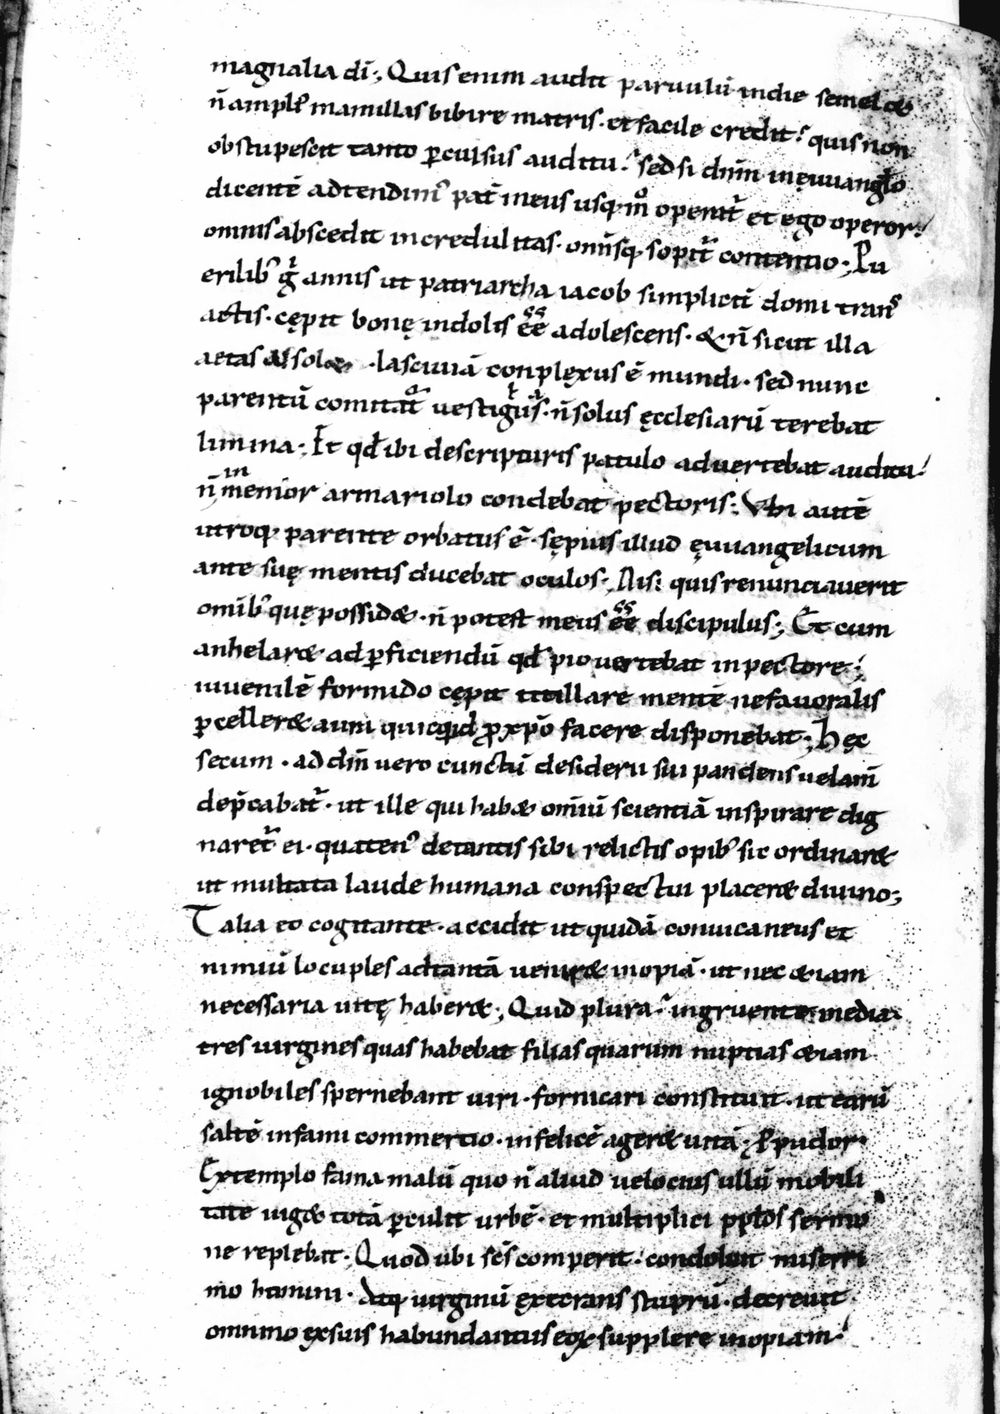 magnalia dī; Quis enim audit paruulū in die semel &
n̄ ampl᾽ mamillas bibire matris· et facile credit? quis non
obstupescit tanto ꝑculsus auditu? sed si dn̄m in ęuuangł̄o
dicentē adtendim᾽ pat̄ meus usq; m̊ operat᷑ et ego operor?
omnis abscedit incredulitas· omīsq; sopit᷑ contentio; Pu
erilib᾽ g᷑ annis ut patriarcha iacob simpliciť domi trans
actis· cępit bonę indolis ēē adolescens· & n̄ sicut illa
aetas assol& · lasciuiā conplexus ē mundi· sed nunc
parentū comitat᷑ uestigiis· n̄ solus ęcclesiarū terebat
limina· Et qđ ibi de scripturis patulo aduertebat auditu!
n̄ inmemor armariolo condebat pectoris; Vbi autē
utroq; parente orbatus ē· sępius illud ęuuangelicum
ante suę mentis ducebat oculos· Nisi quis renunciauerit
omīb᾽ quę possid&· n̄ potest meus ēē discipulus; Et cum
anhelar& ad ꝑficiendū qđ pio uertebat in pectore;
iuuenilē formido cępit titillare mentē ne fauoralis
ꝑceller& aura quicquid ꝓ xp̄o facere disponebat; Hęc
secum · ad dn̄m uero cunctū desiderii sui pandens uelam̄
dep̄cabat᷑· ut ille qui hab& omīū scientiā inspirare dig
naret᷑ ei· quaten᾽ de tantis sibi relictis opib᾽ sic ordinar&
ut multata laude humana conspectui placer& diuino;
Talia eo cogitante· accidit ut quidā conuicaneus et
nimiū locuples ad tantā uenir& inopiā· ut nec &iam
necessaria uitę haber&; Quid plura? ingruente inedia·
tres uirgines quas habebat filias quarum nuptias &iam
ignobiles spernebant uiri· fornicari constituit· ut earū
saltē infami commertio· infelicē ager& uitā· Ꝓ pudor·
Extemplo fama malū quo n̄ aliud uelocius ullū mobili
tate uig& totā ꝑculit urbē· et multiplici pplōs sermo
ne replebat· Quod ubi sc̄s comperit· condoluit miserri
mo homini· Atq; uirginū ęxecrans stuprū· decreuit
omnino ęx suis habundantiis eoꝝ supplere inopiam·